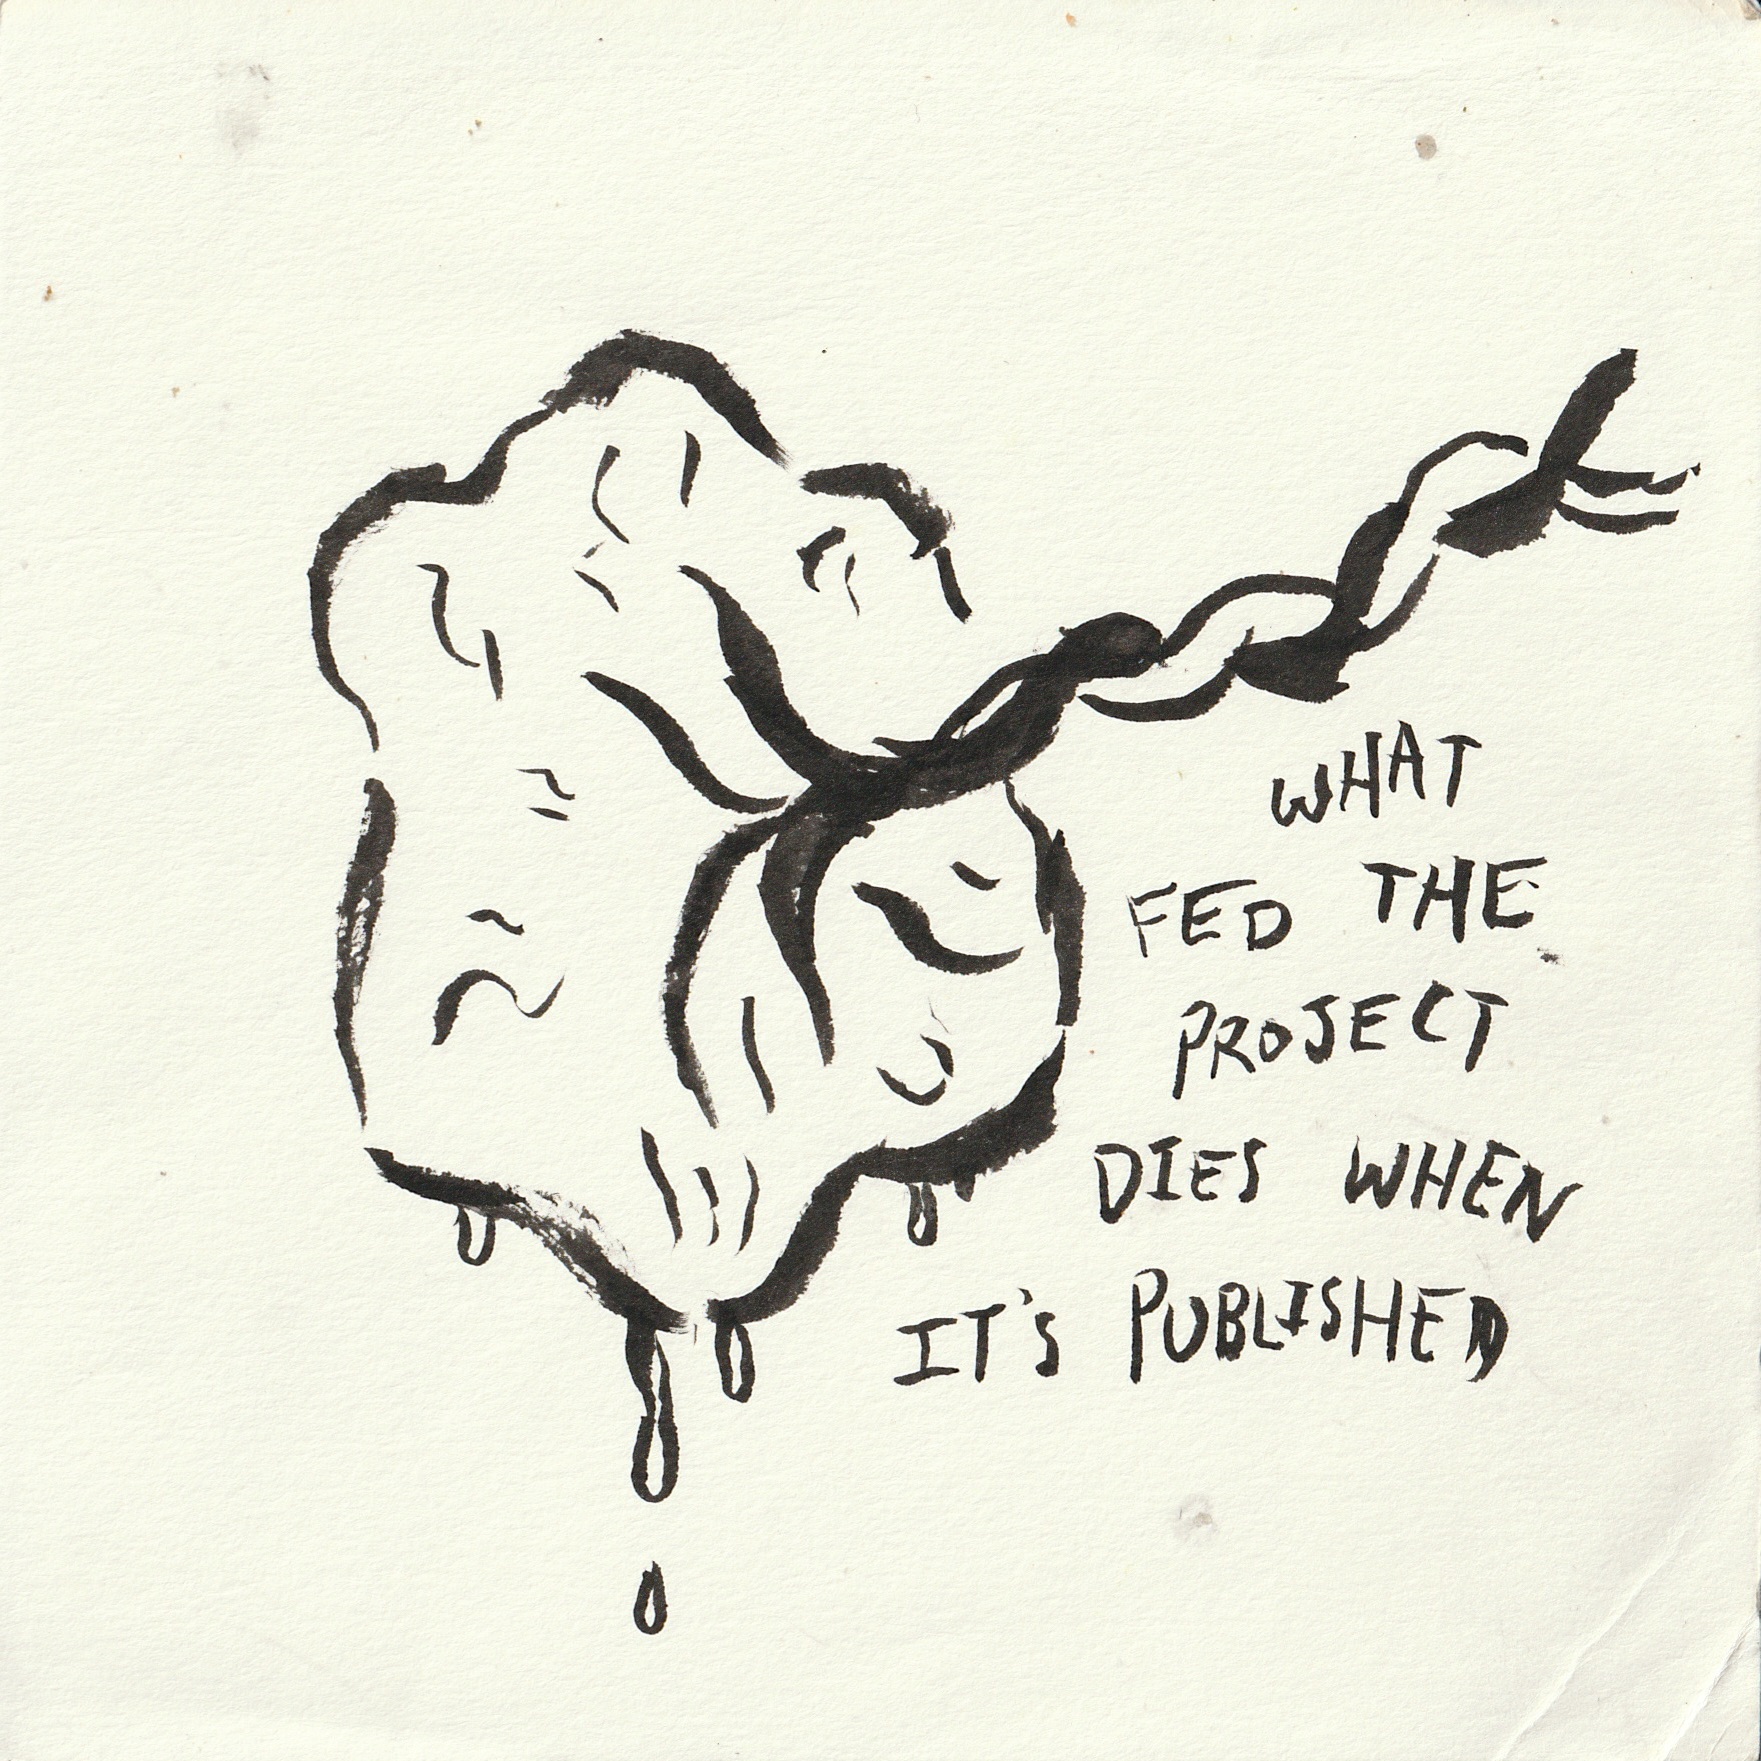 WHAT
FED THE
PROJECT
DIES WHEN
IT'S PUBLISHED